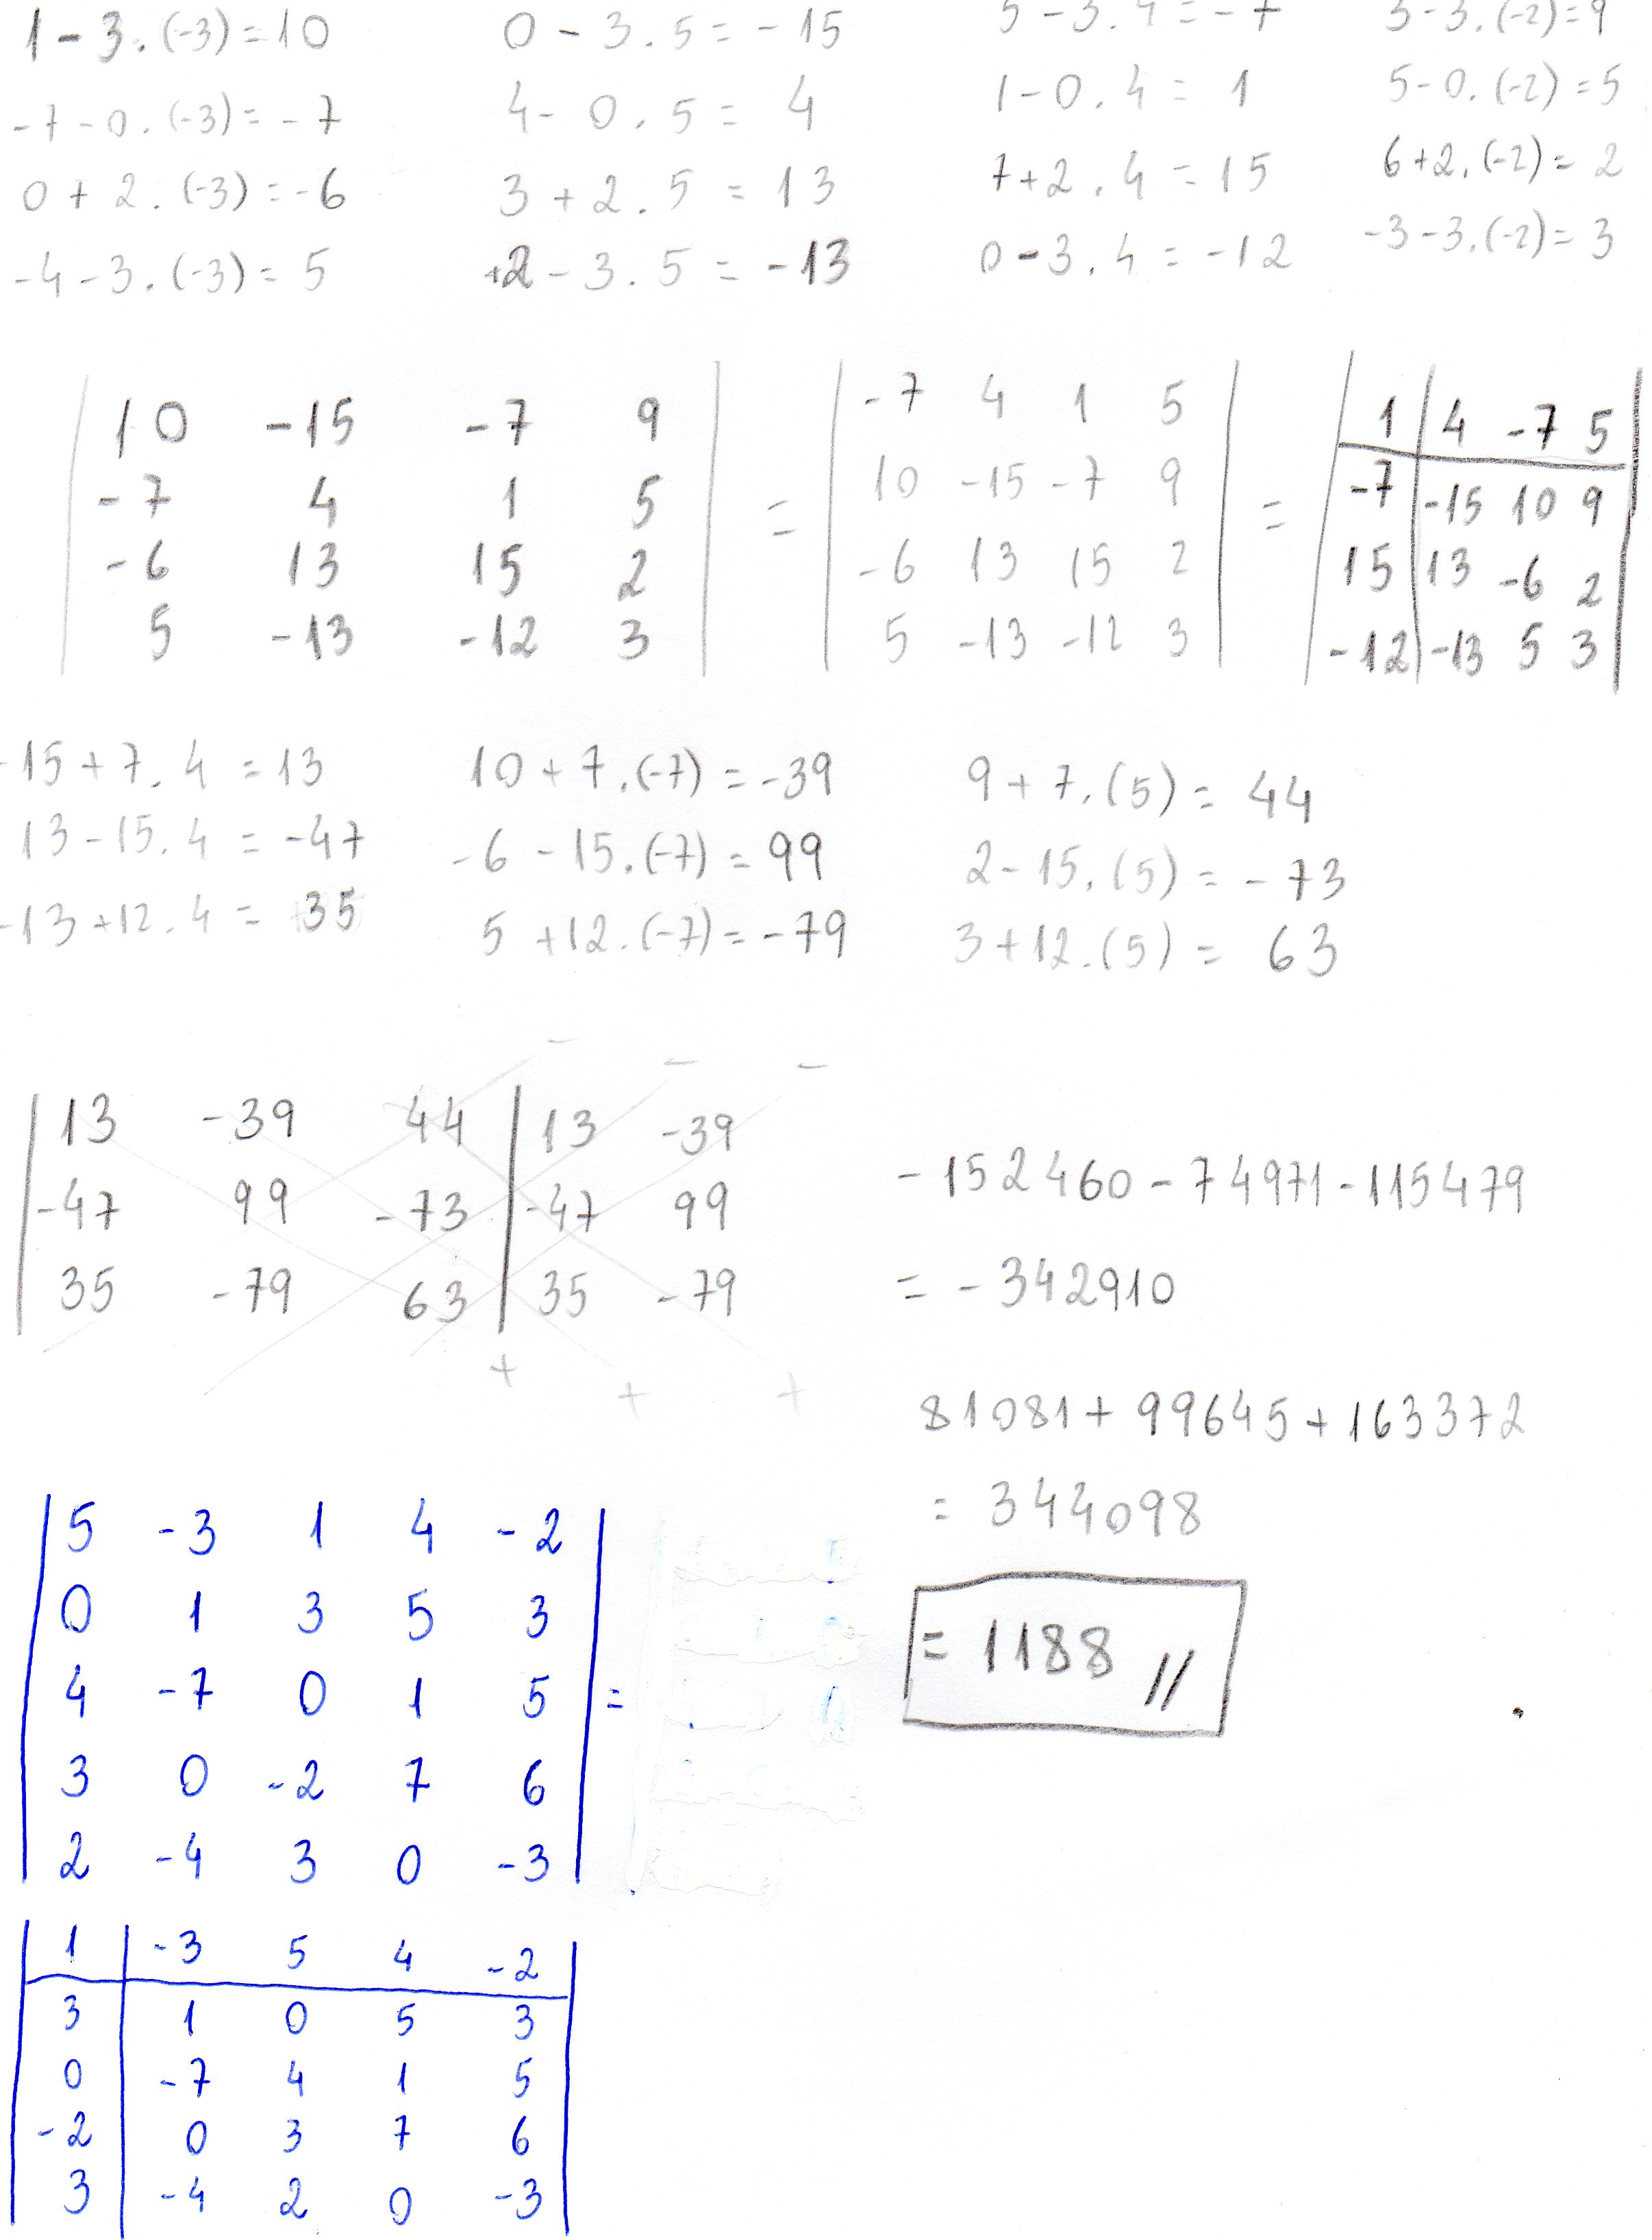 1 - 3 . (-3) = 10    0 - 3 . 5 = - 15    5 - 3 . 4 = - 7    3 - 3 . (-2) = 9
- 7 - 0 . (-3) = - 7    4 - 0 . 5 = 4    1 - 0 . 4 = 1    5 - 0 . (-2) = 5
0 + 2 . (-3) = - 6    3 + 2 . 5 = 13    7 + 2 . 4 = 15    6 + 2 . (-2) = 2
- 4 - 3 . (-3) = 5    +2 - 3 . 5 = - 13    0 - 3 . 4 = - 12    -3 - 3 . (-2) = 3
| 10 -15 -7 9 | | -7 4 1 5 | | 1 | 4 -7 5 |
| -7 4 1 5 | = | 10 -15 -7 9 | = | -7 | -15 10 9 |
| -6 13 15 2 | | -6 13 15 2 | | 15 | 13 -6 2 |
| 5 -13 -12 3 | | 5 -13 -12 3 | | -12 | -13 5 3 |
-15 + 7 . 4 = 13    10 + 7 . (-7) = -39    9 + 7 . (5) = 44
13 - 15 . 4 = -47    -6 - 15 . (-7) = 99    2 - 15 . (5) = - 73
-13 + 12 . 4 = 35    5 + 12 . (-7) = - 79    3 + 12 . (5) = 63
- - -
| 13 -39 44 | 13 -39
| -47 99 -73 | -47 99
| 35 -79 63 | 35 -79
+ + +
- 152460 - 74971 - 115479
= - 342910
81081 + 99645 + 163372
= 344098
= 1188 //
| 5 -3 1 4 -2 |
| 0 1 3 5 3 |
| 4 -7 0 1 5 | =
| 3 0 -2 7 6 |
| 2 -4 3 0 -3 |
| 1 | -3 5 4 -2 |
| 3 | 1 0 5 3 |
| 0 | -7 4 1 5 |
| -2 | 0 3 7 6 |
| 3 | -4 2 0 -3 |